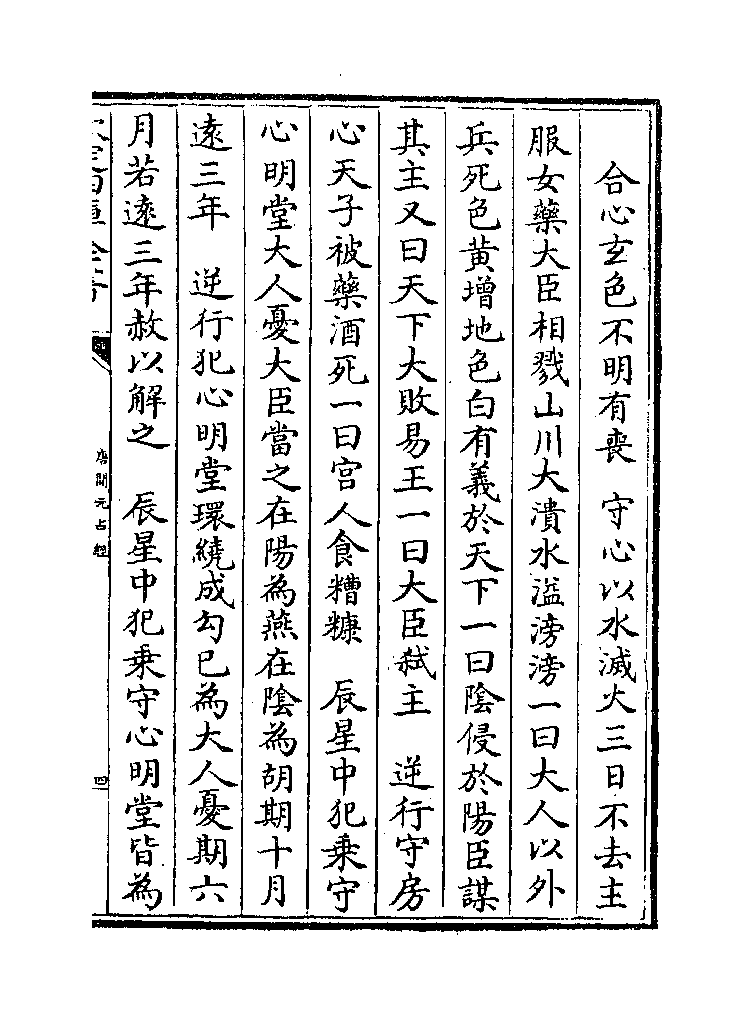 合心玄色不明有喪　守心以水滅火三日不去主
服女藥大臣相戮山川大潰水溢滂滂一曰大人以外
兵死色黄増地色白有義於天下一曰陰侵於陽臣謀
其主又曰天下大敗易王一曰大臣弑主　逆行守房
心天子被藥酒死一曰宫人食糟糠　辰星中犯乗守
心明堂大人憂大臣當之在陽為燕在陰為胡期十月
逺三年　逆行犯心明堂環繞成勾已為大人憂期六
月若逺三年赦以解之　辰星中犯乗守心明堂皆為
欽定四庫全書
唐開元占經
四